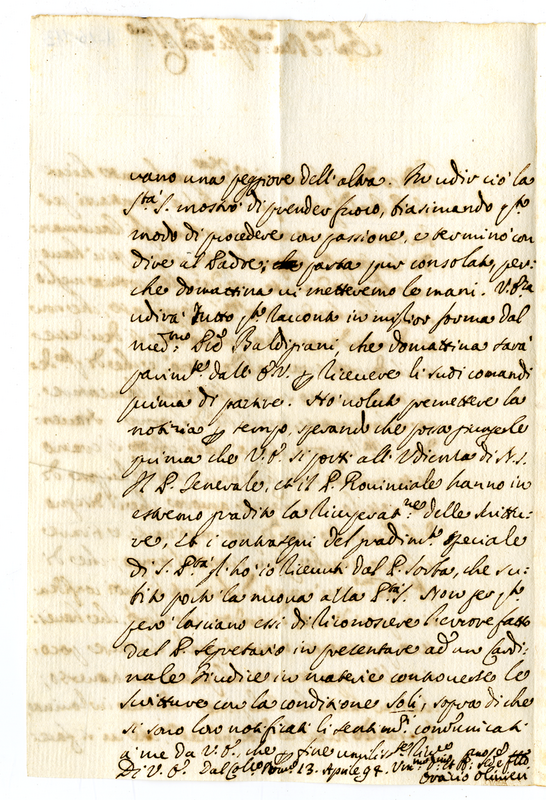 vano una peggiore dell'altra. In udir ciò la
S.tà S. mostrò di prender fuoco, biasimando q.to
modo di procedere con passione, e terminò con
dire al Padre; parta pur consolato, per-
che domattina vi metteremo le mani. V.
udirà tutto q.to racconto in miglior forma dal
med.mo P. Baldigiani, che domattina sarà
parim.te dall' V. p ricevere li suoi comandi
prima di partire. Hò voluto premettere la
notizia p tempo, sperando che possa giungerle
prima che V. si porti all'Udienza di N. S.
Il P. Generale, et il P. Provinciale hanno in
estremo gradito la ricuperat.ne delle scrittu-
re, et i contrasegni del gradim.to speciale
di S. S.tà gl'hò io ricevuti dal P. , che su-
bito portò la nuova alla S.tà S. Non per q.to
però lasciano essi di riconoscere l'errore fatto
dal P. Segretario in presentare ad un Cardi-
nale Giudice in materie controverse le
scritture con la conditione soli, sopra di che
si sono loro notificati li sentim.ti com̃unicati
a me da V. , che p fine umiliss.te
Di V. Dal Coll.o Rom.o 13. Aprile 94.
Orazio Olivieri